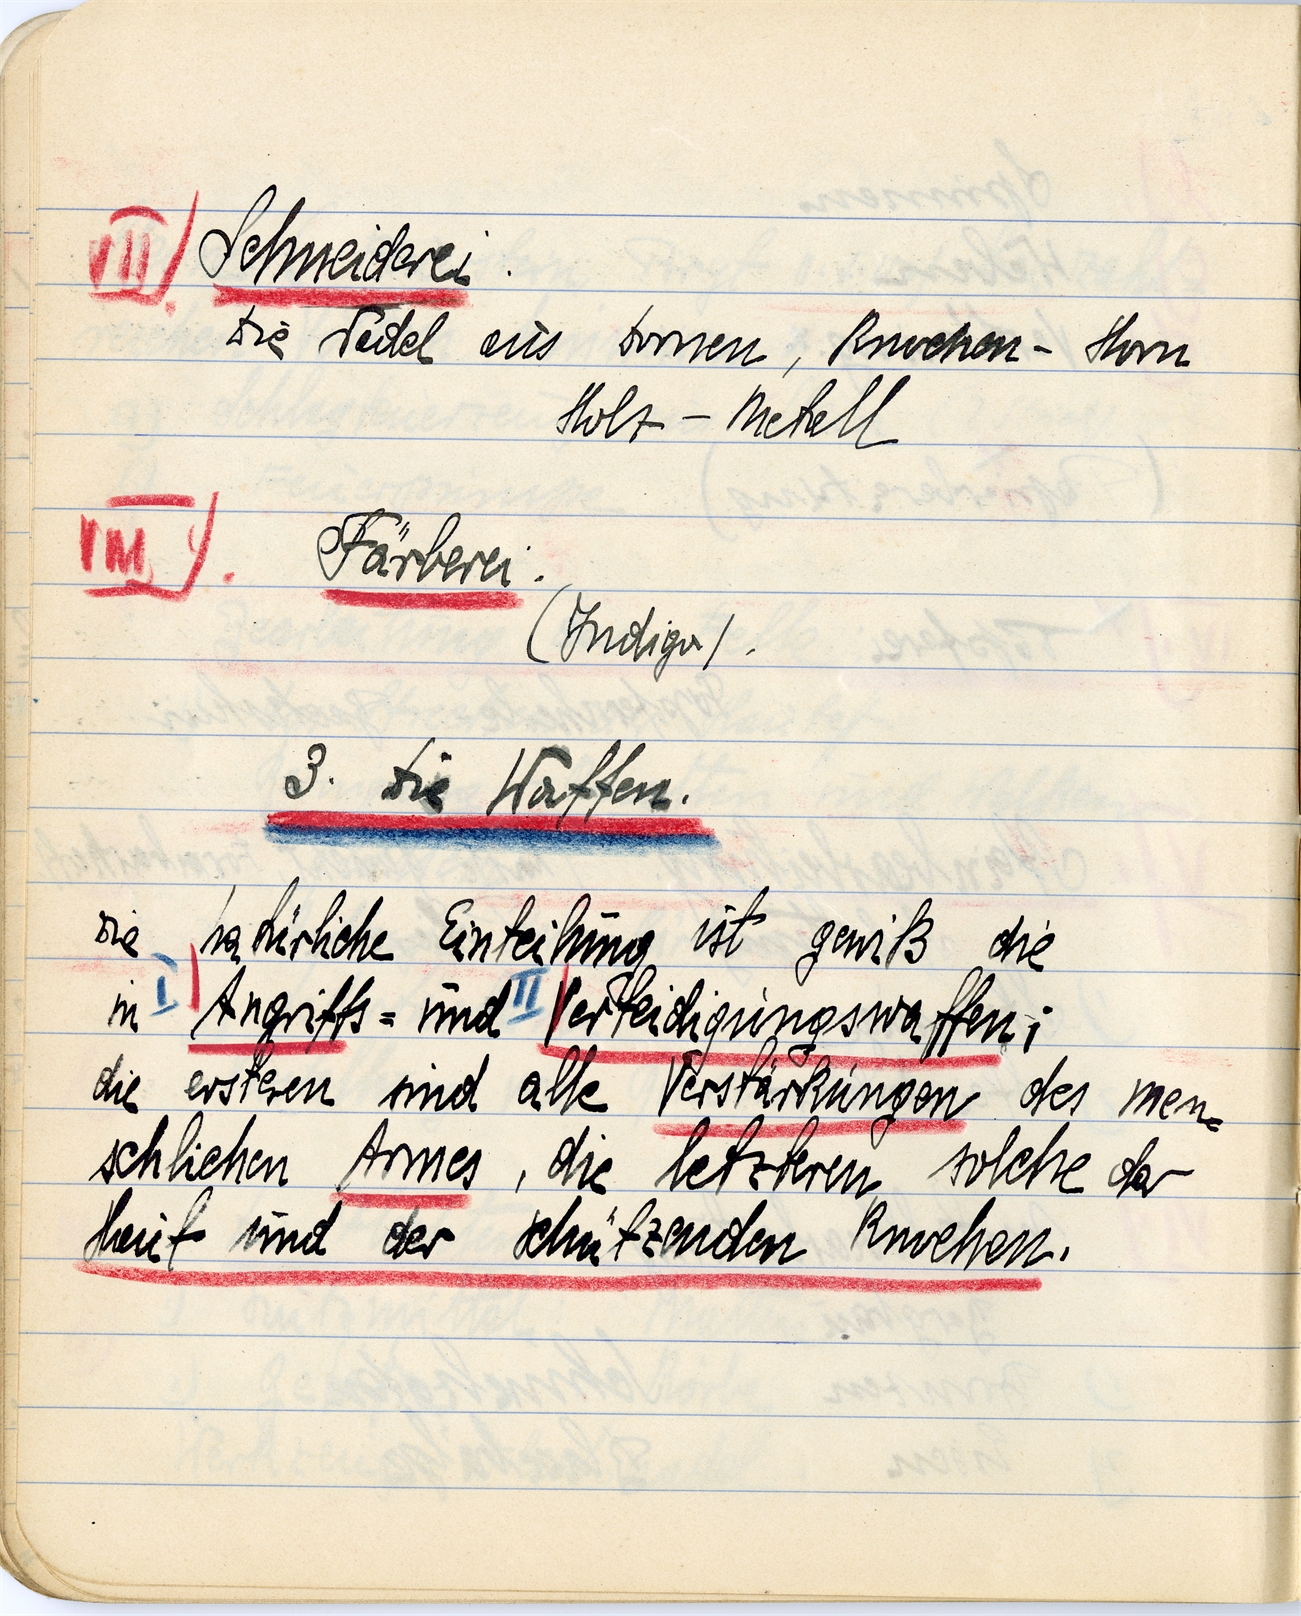 VII) Schneiderei.
Die Nadel aus Dornen, Knochen- Horn
Holz - Metall
VIII). Färberei.
(Indigo).
3. Die Waffen.
Die natürliche Einteilung ist gewiß die
in I) Angriffs= und II) Verteidigungswaffen;
die ersteren sind alle Verstärkungen des men=
schlichen Armes, die letzteren solche der
Haut und der schützenden Knochen.